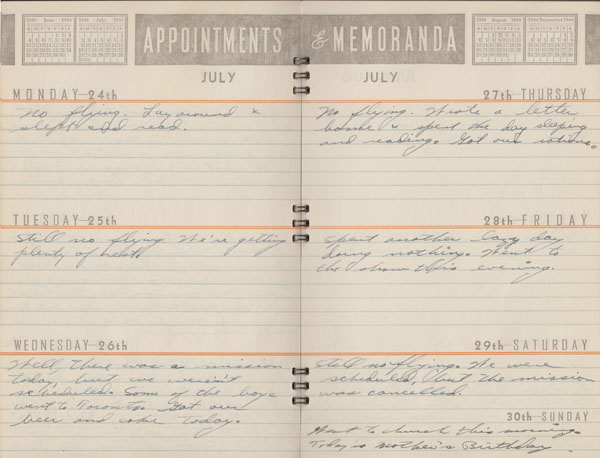 APPOINTMENTS & MEMORANDA
JULY
MONDAY 24th
No flying. Lay around &
slept and read.
TUESDAY 25th
Still no flying. We're getting
plenty of rest.
WEDNESDAY 26th
Well, there was a mission
today, but we weren't
scheduled. Some of the boys
went to Toronto. Got our
beer and coke today.
JULY
27th THURSDAY
No flying. Wrote a letter
home & spent the day sleeping
and reading. Got our rations.
28th FRIDAY
Spent another lazy day
doing nothing. Went to
the show this evening.
29th SATURDAY
Still no flying. We were
scheduled, but the mission
was cancelled.
30th SUNDAY
Went to church this morning.
Today is Mother's Birthday